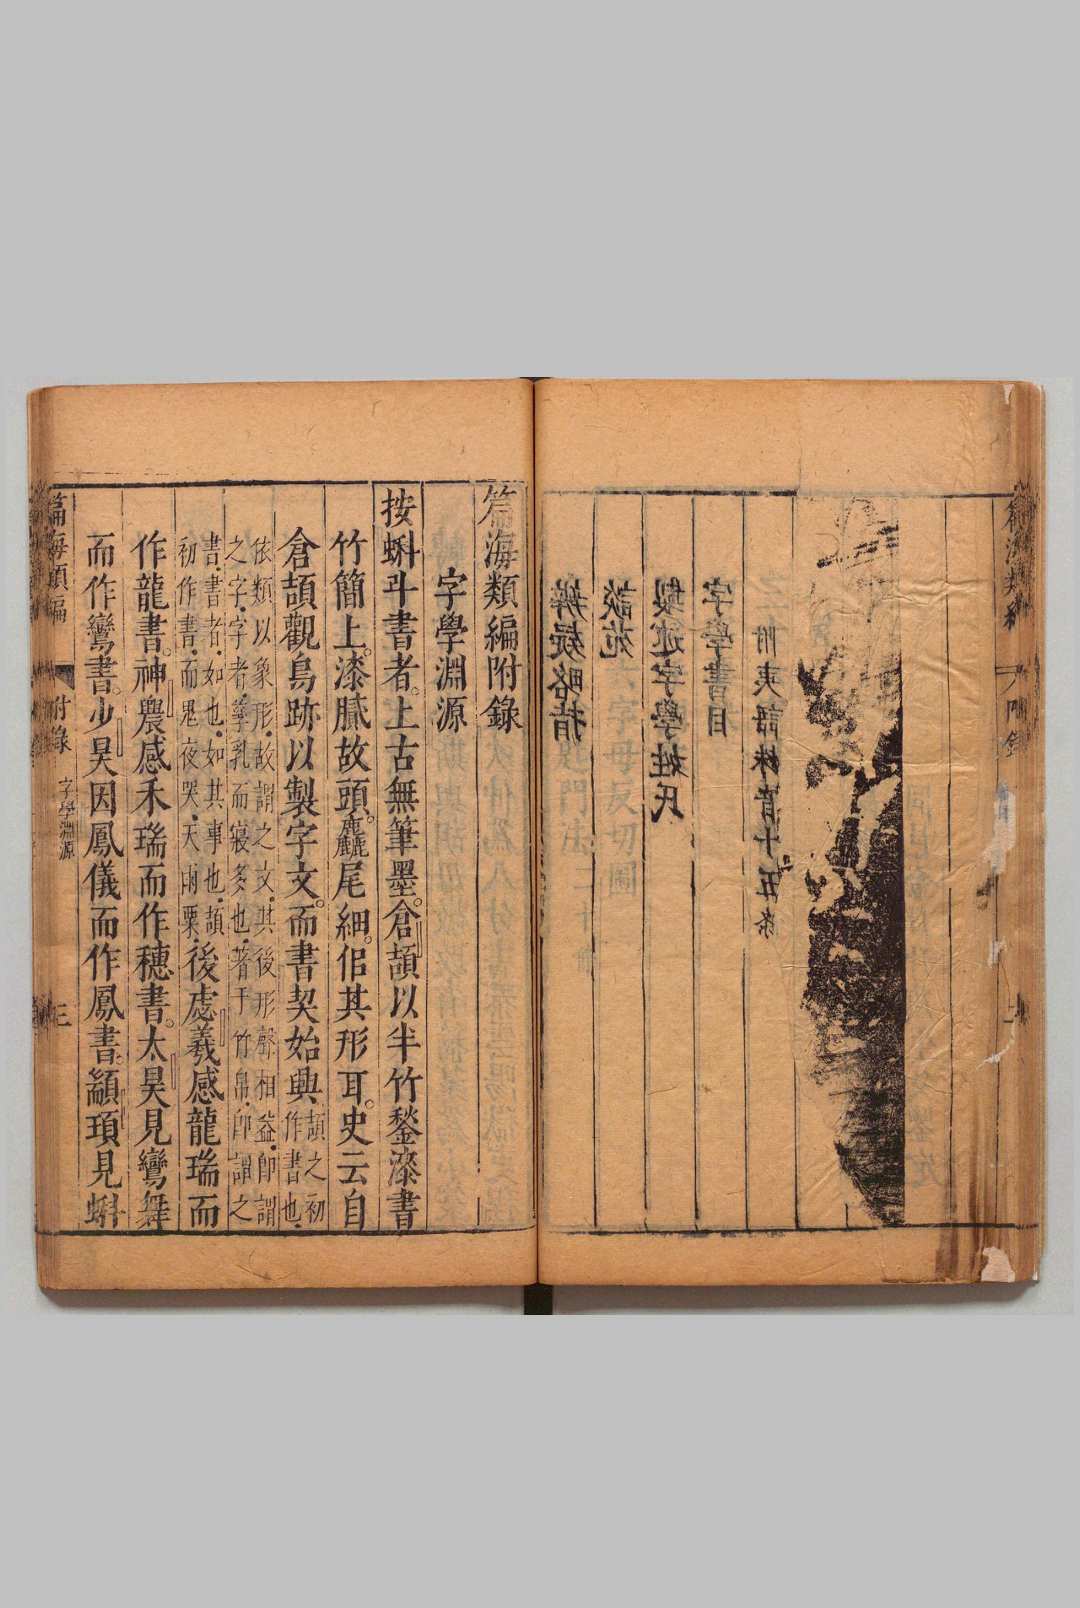 篇海類編 附錄
附夷語殊音十五條
字學書目
製述字學姓氏
談苑
辨疑略指
篇海類編附錄
字學淵源
按蝌斗書者。上古無筆墨。倉頡以半竹鍫漆書
竹簡上。漆膩故頭麤。尾細。佀其形耳。史云自
倉頡觀鳥跡以製字文。而書契始興頡之初作書也。
依類以象形。故謂之文。其後形聲相益。即謂
之字。字者。孳乳而寖多也。著于竹帛。即謂之
書。書者。如也。如其事也。頡
初作書。而鬼夜哭。天雨粟。後虙羲感龍瑞而
作龍書。神農感禾瑞而作穗書。太昊見鸞舞
而作鸞書。少昊因鳳儀而作鳳書。顓頊見蝌
篇海類編 附錄 字學淵源 三